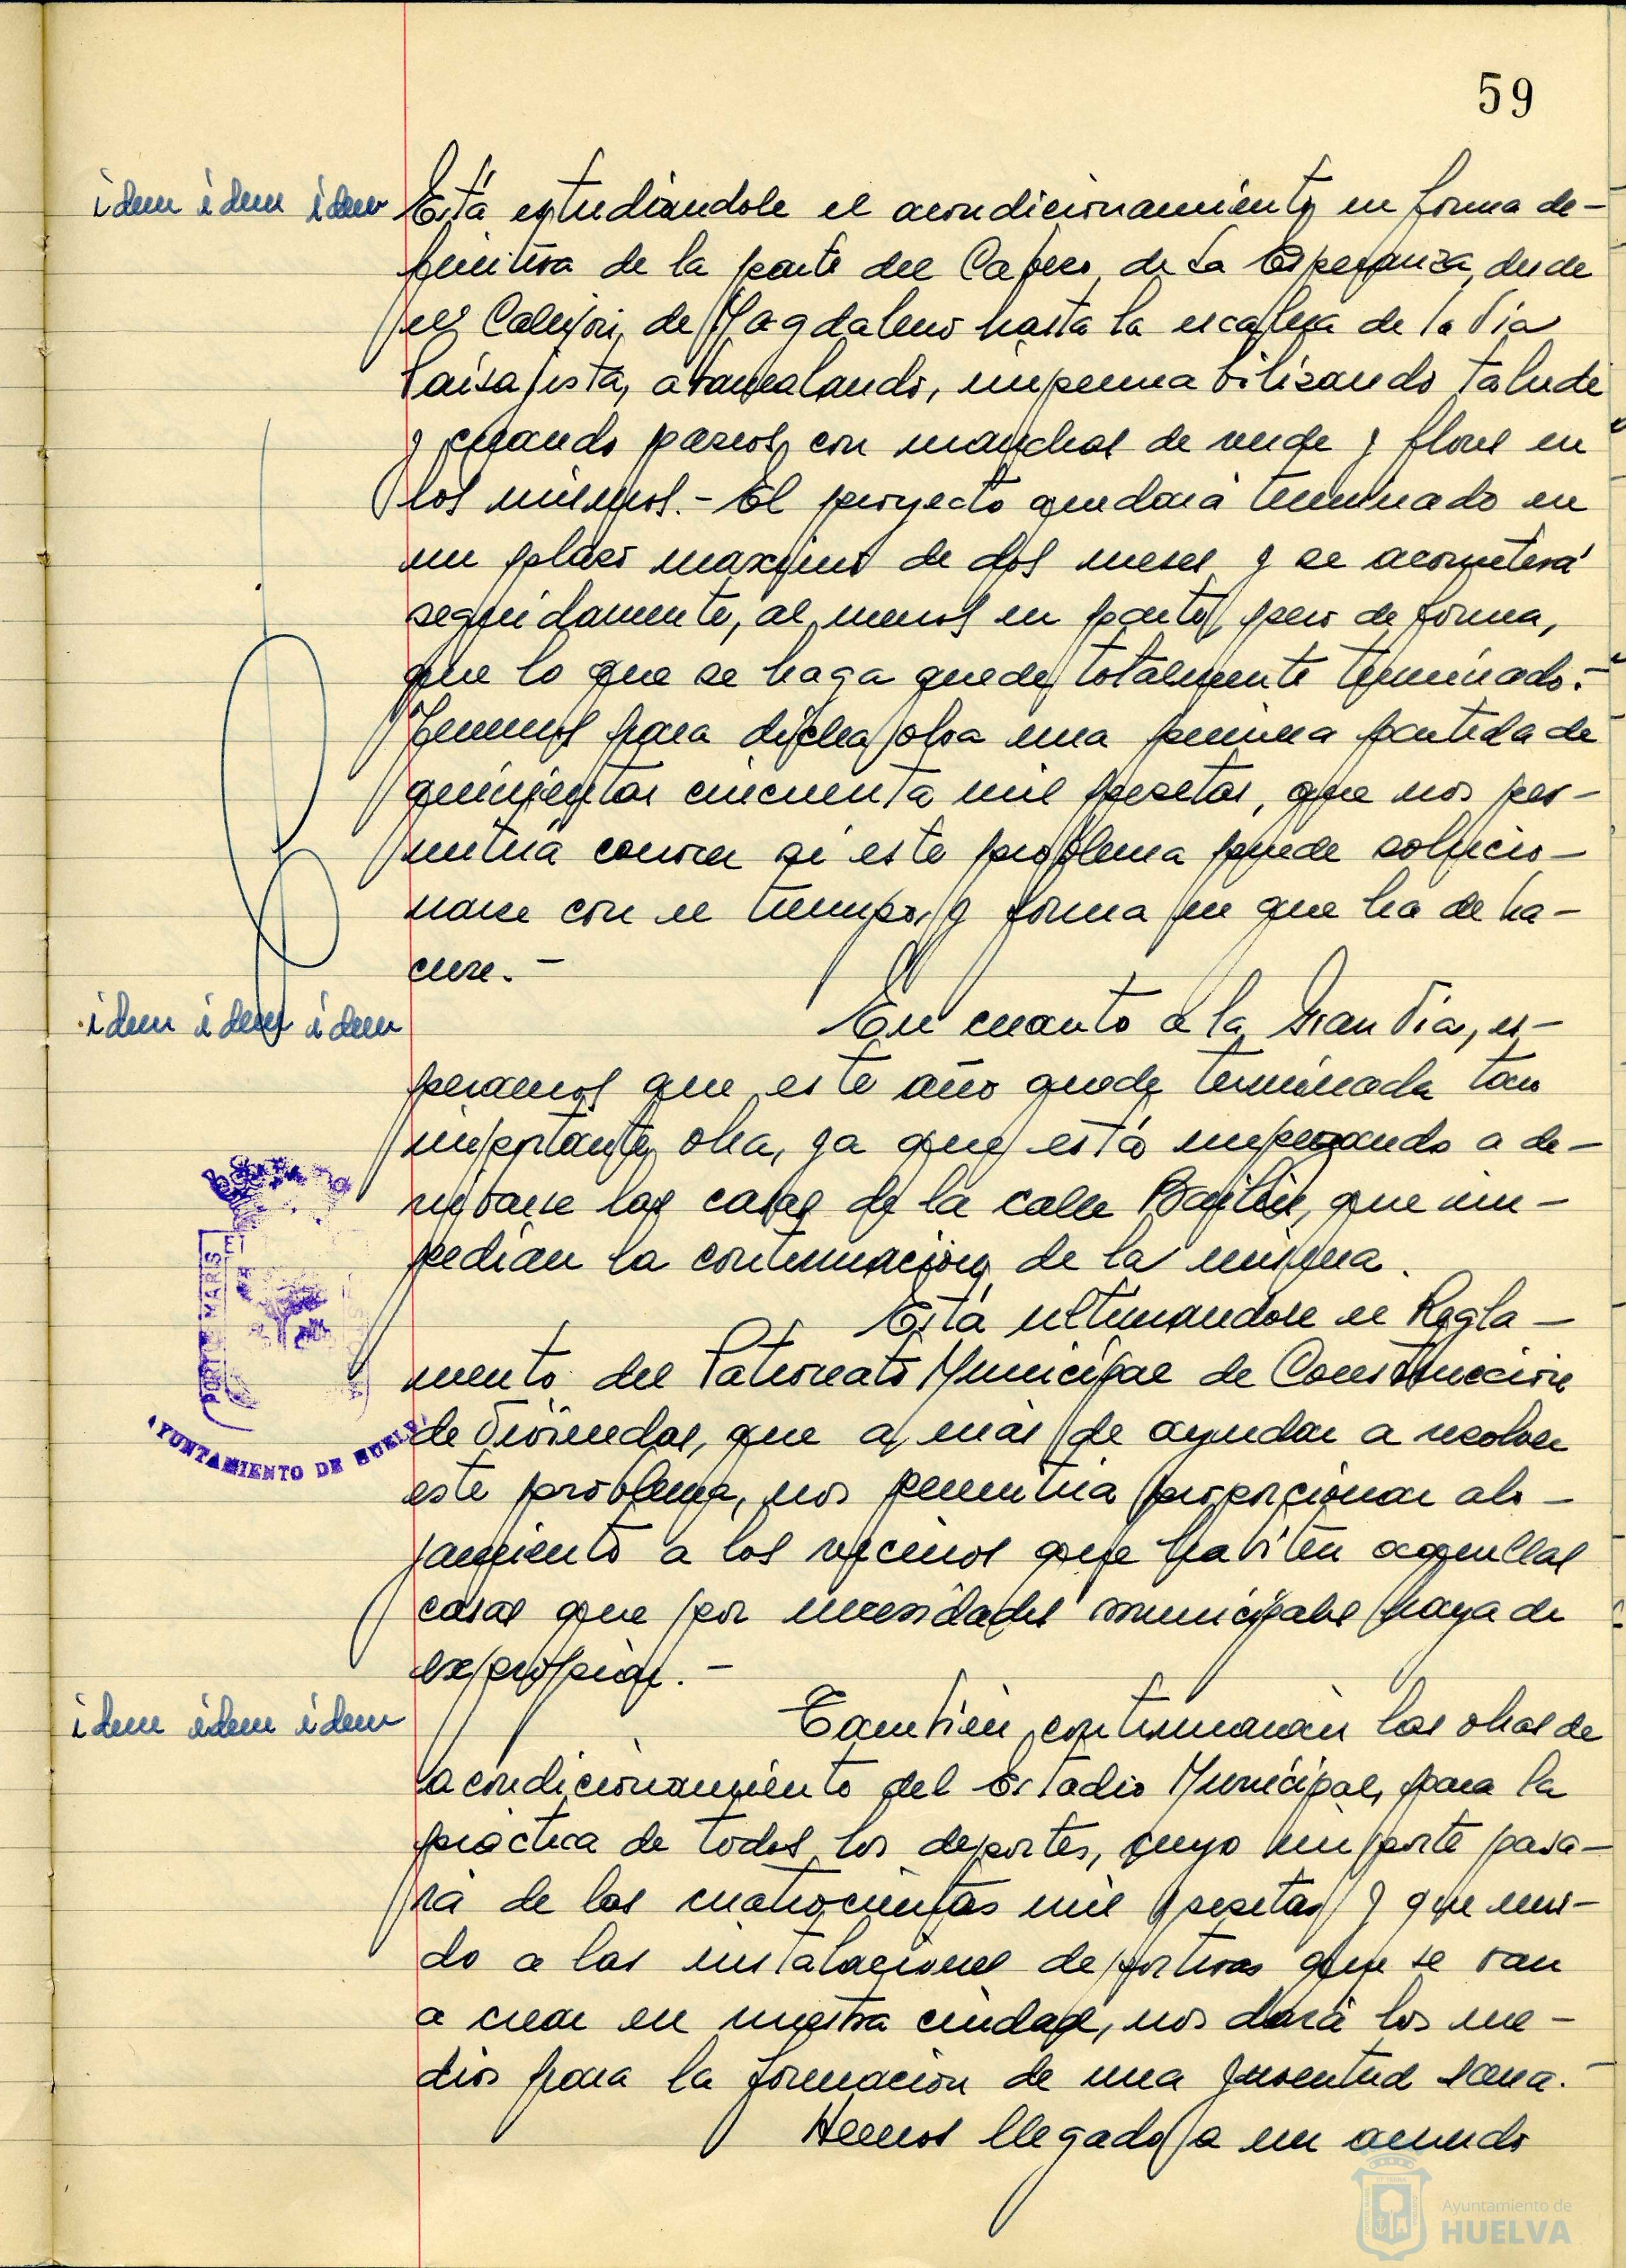 59
idem idem idem
Está estudiándose el acondicionamiento en forma de-
finitiva de la parte del Cabezo de La Esperanza, desde
el Callejón de Magdaleno hasta la escalera de la Vía
Paisajista, abancalando, impermeabilizando talude
y creando paseos con manchas de verde y flores en
los mismos.- El proyecto quedará terminado en
un plazo maximo de dos meses y se acometerá
seguidamente, al menos en parte, pero de forma,
que lo que se haga quede totalmente terminado.-
Tenemos para dicha obra una primera partida de
quinientas cincuenta mil pesetas, que nos per-
mitirá conocer si este problema puede solucio-
narse con el tiempo y forma en que ha de ha-
cerse.-
idem idem idem
En cuanto a la Gran Vía, es-
peramos que este año quede terminada tan
importante obra, ya que está empezando a de-
rribarse las casas de la calle Bailén, que im-
pedían la continuación de la misma.
Está ultimandose el Regla-
mento del Patronato Municipal de Construccion
de Viviendas, que a más de ayudar a resolver
este problema, nos permitiría proporcionar alo-
jamiento a los vecinos que habiten aquellas
casas que por necesidades municipales haya de
expropiar.-
idem idem idem
También continuarán las obras de
acondicionamiento del Estadio Municipal, para la
práctica de todos los deportes, cuyo importe pasa-
rá de las cuatrocientas mil pesetas y que uni-
do a las instalaciones deportivas que se van
a crear en nuestra ciudad, nos dará los me-
dios para la formación de una juventud sana.-
Hemos llegado a un acuerdo
PORTUS MARIS ET
AYUNTAMIENTO DE HUELVA
Ayuntamiento de
HUELVA